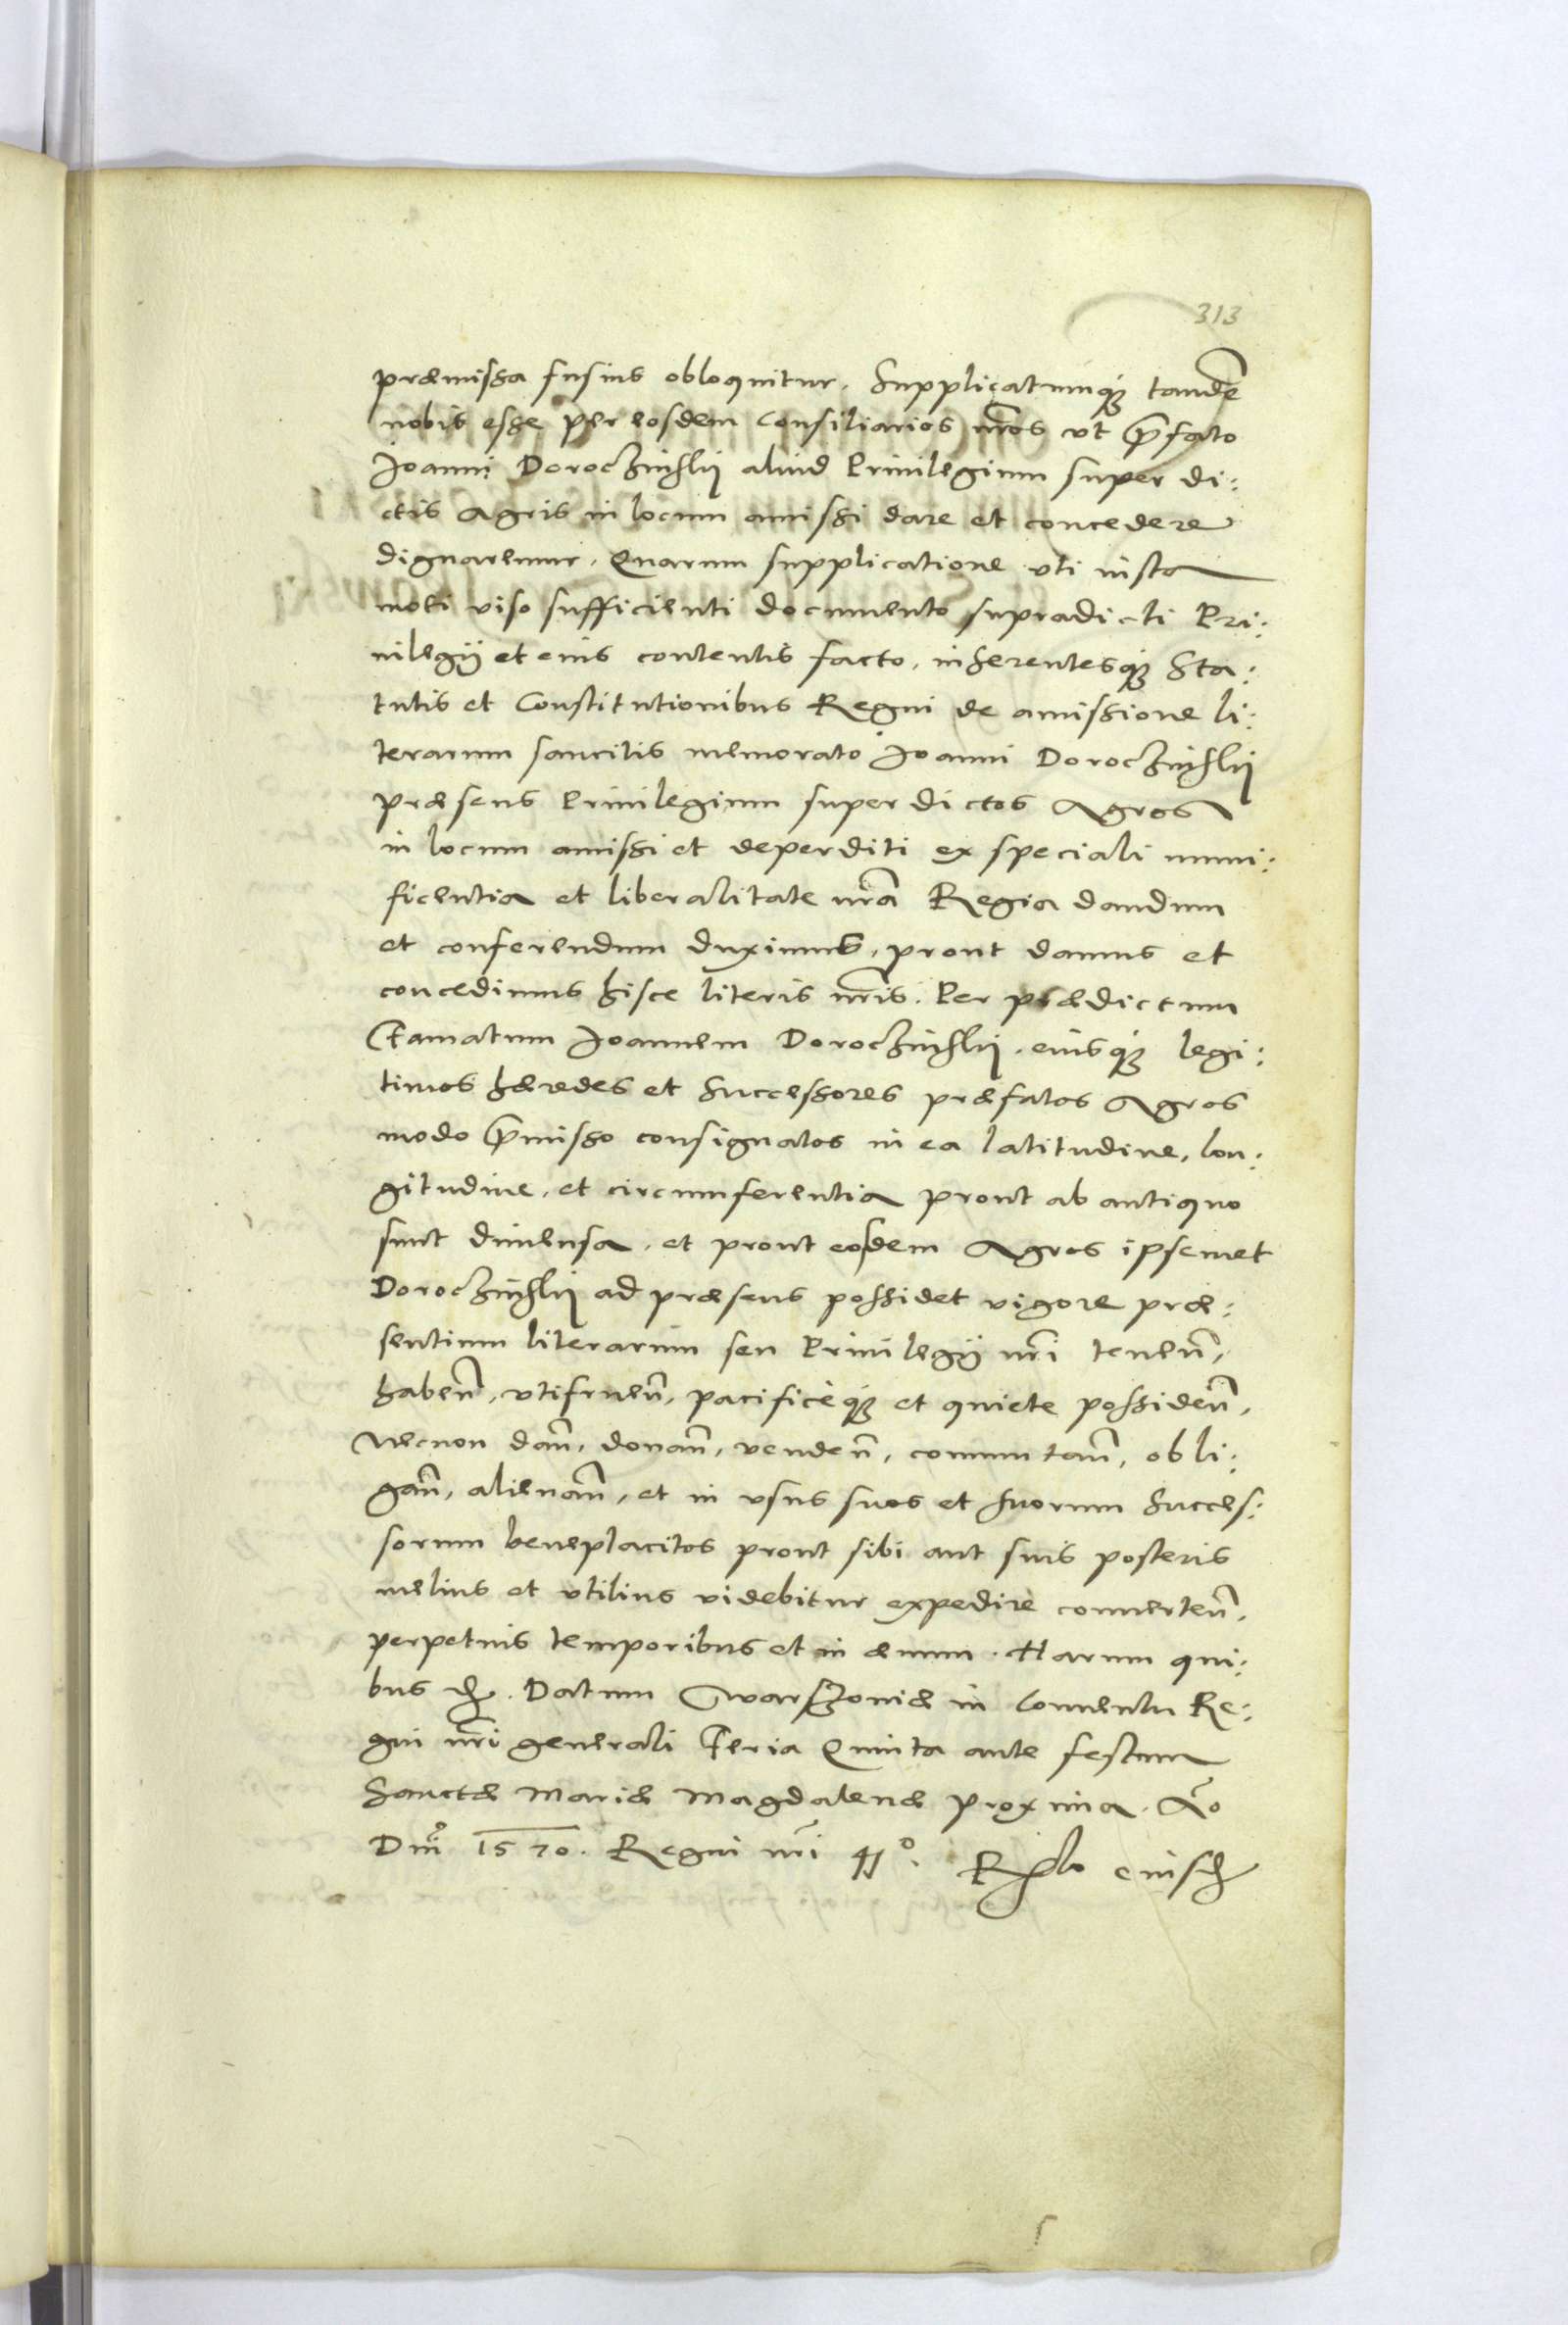 313
præmissa fusius obloquitur. Supplicatumq́ꝫ tandē
nobis esse per eosdem Consiliarios nr̄os vt p̄fato
Joanni Doroczinskij aliud Priuilegium super di:
ctis Agris in locum amissi dare et concedere
dignaremur. Quarum supplicatione vti iusta
moti viso sufficienti documento supradicti Pri:
uilegij et eius contentis facto, inherentesq́ꝫ Sta:
tutis et Constitutionibus Regni de amissione li:
terarum sancitis memorato Joanni Doroczinskij
præsens Priuilegium super dictos Agros
in locum amissi et deperditi ex speciali muni:
ficentia et liberalitate nr̄a Regia dandum
et conferendum duximus, prout damus et
concedimus hisce literis nr̄is. Per prædictum
Famatum Joannem Doroczinskij, eiusq́ꝫ legi:
timos hæredes et Successores præfatos Agros
modo p̄misso consignatos in ea latitudine, lon:
gitudine, et circumferentia prout ab antiquo
sunt dimensa, et prout eosdem Agros ipsemet
Doroczinskij ad præsens possidet vigore præ:
sentium literarum seu Priuilegij nr̄i tenen̄,
haben̄, vtifruen̄, pacificèq́ꝫ et quiete possiden̄,
Necnon dan̄, donan̄, venden̄, commutan̄, obli:
gan̄, alienan̄, et in vsus suos et suorum Succes:
sorum beneplacitos prout sibi aut suis posteris
melius et vtilius videbitur expedire conuerten̄,
perpetuis temporibus et in æuum. Harum qui:
bus &c. Datum Warszouiæ in Conuentu Re:
gni nr̄i generali Feria Quinta ante festum
Sanctæ Mariæ Magdalenæ proxima. Aō
Dn̄i 1570. Regni nr̄i 41º. Rlo eiusd